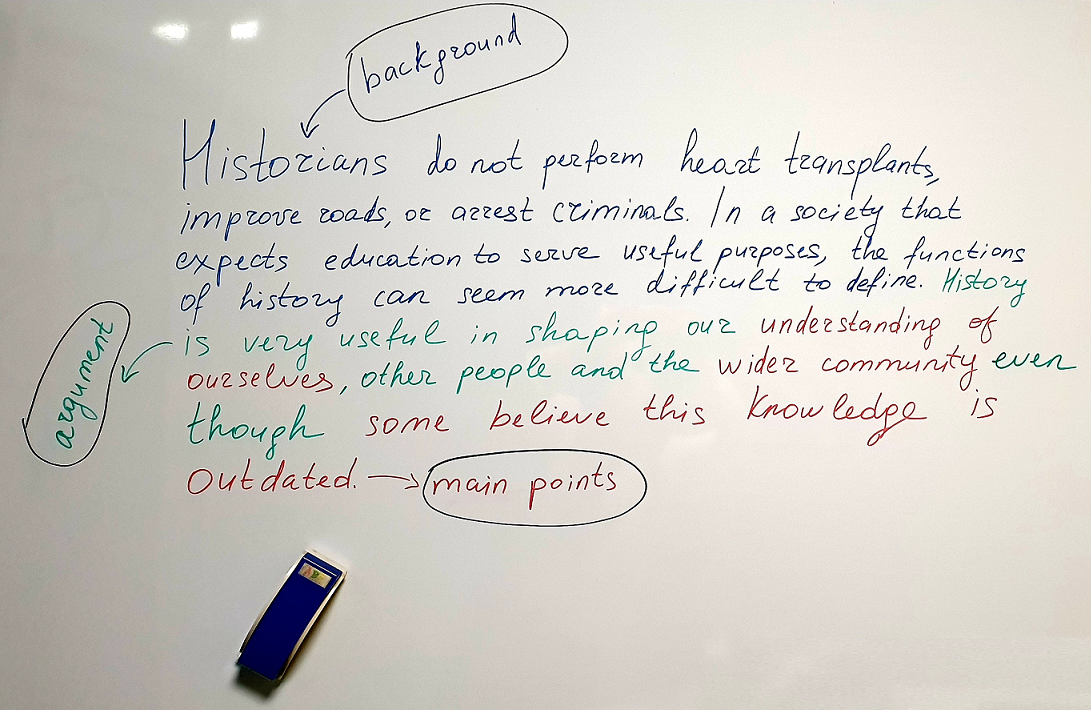 background
Historians do not perform heart transplants,
improve roads, or arrest criminals. In a society that
expects education to serve useful purposes, the functions
of history can seem more difficult to define. History
is very useful in shaping our understanding of
ourselves, other people and the wider community even
though some believe this knowledge is
outdated. main points
argument